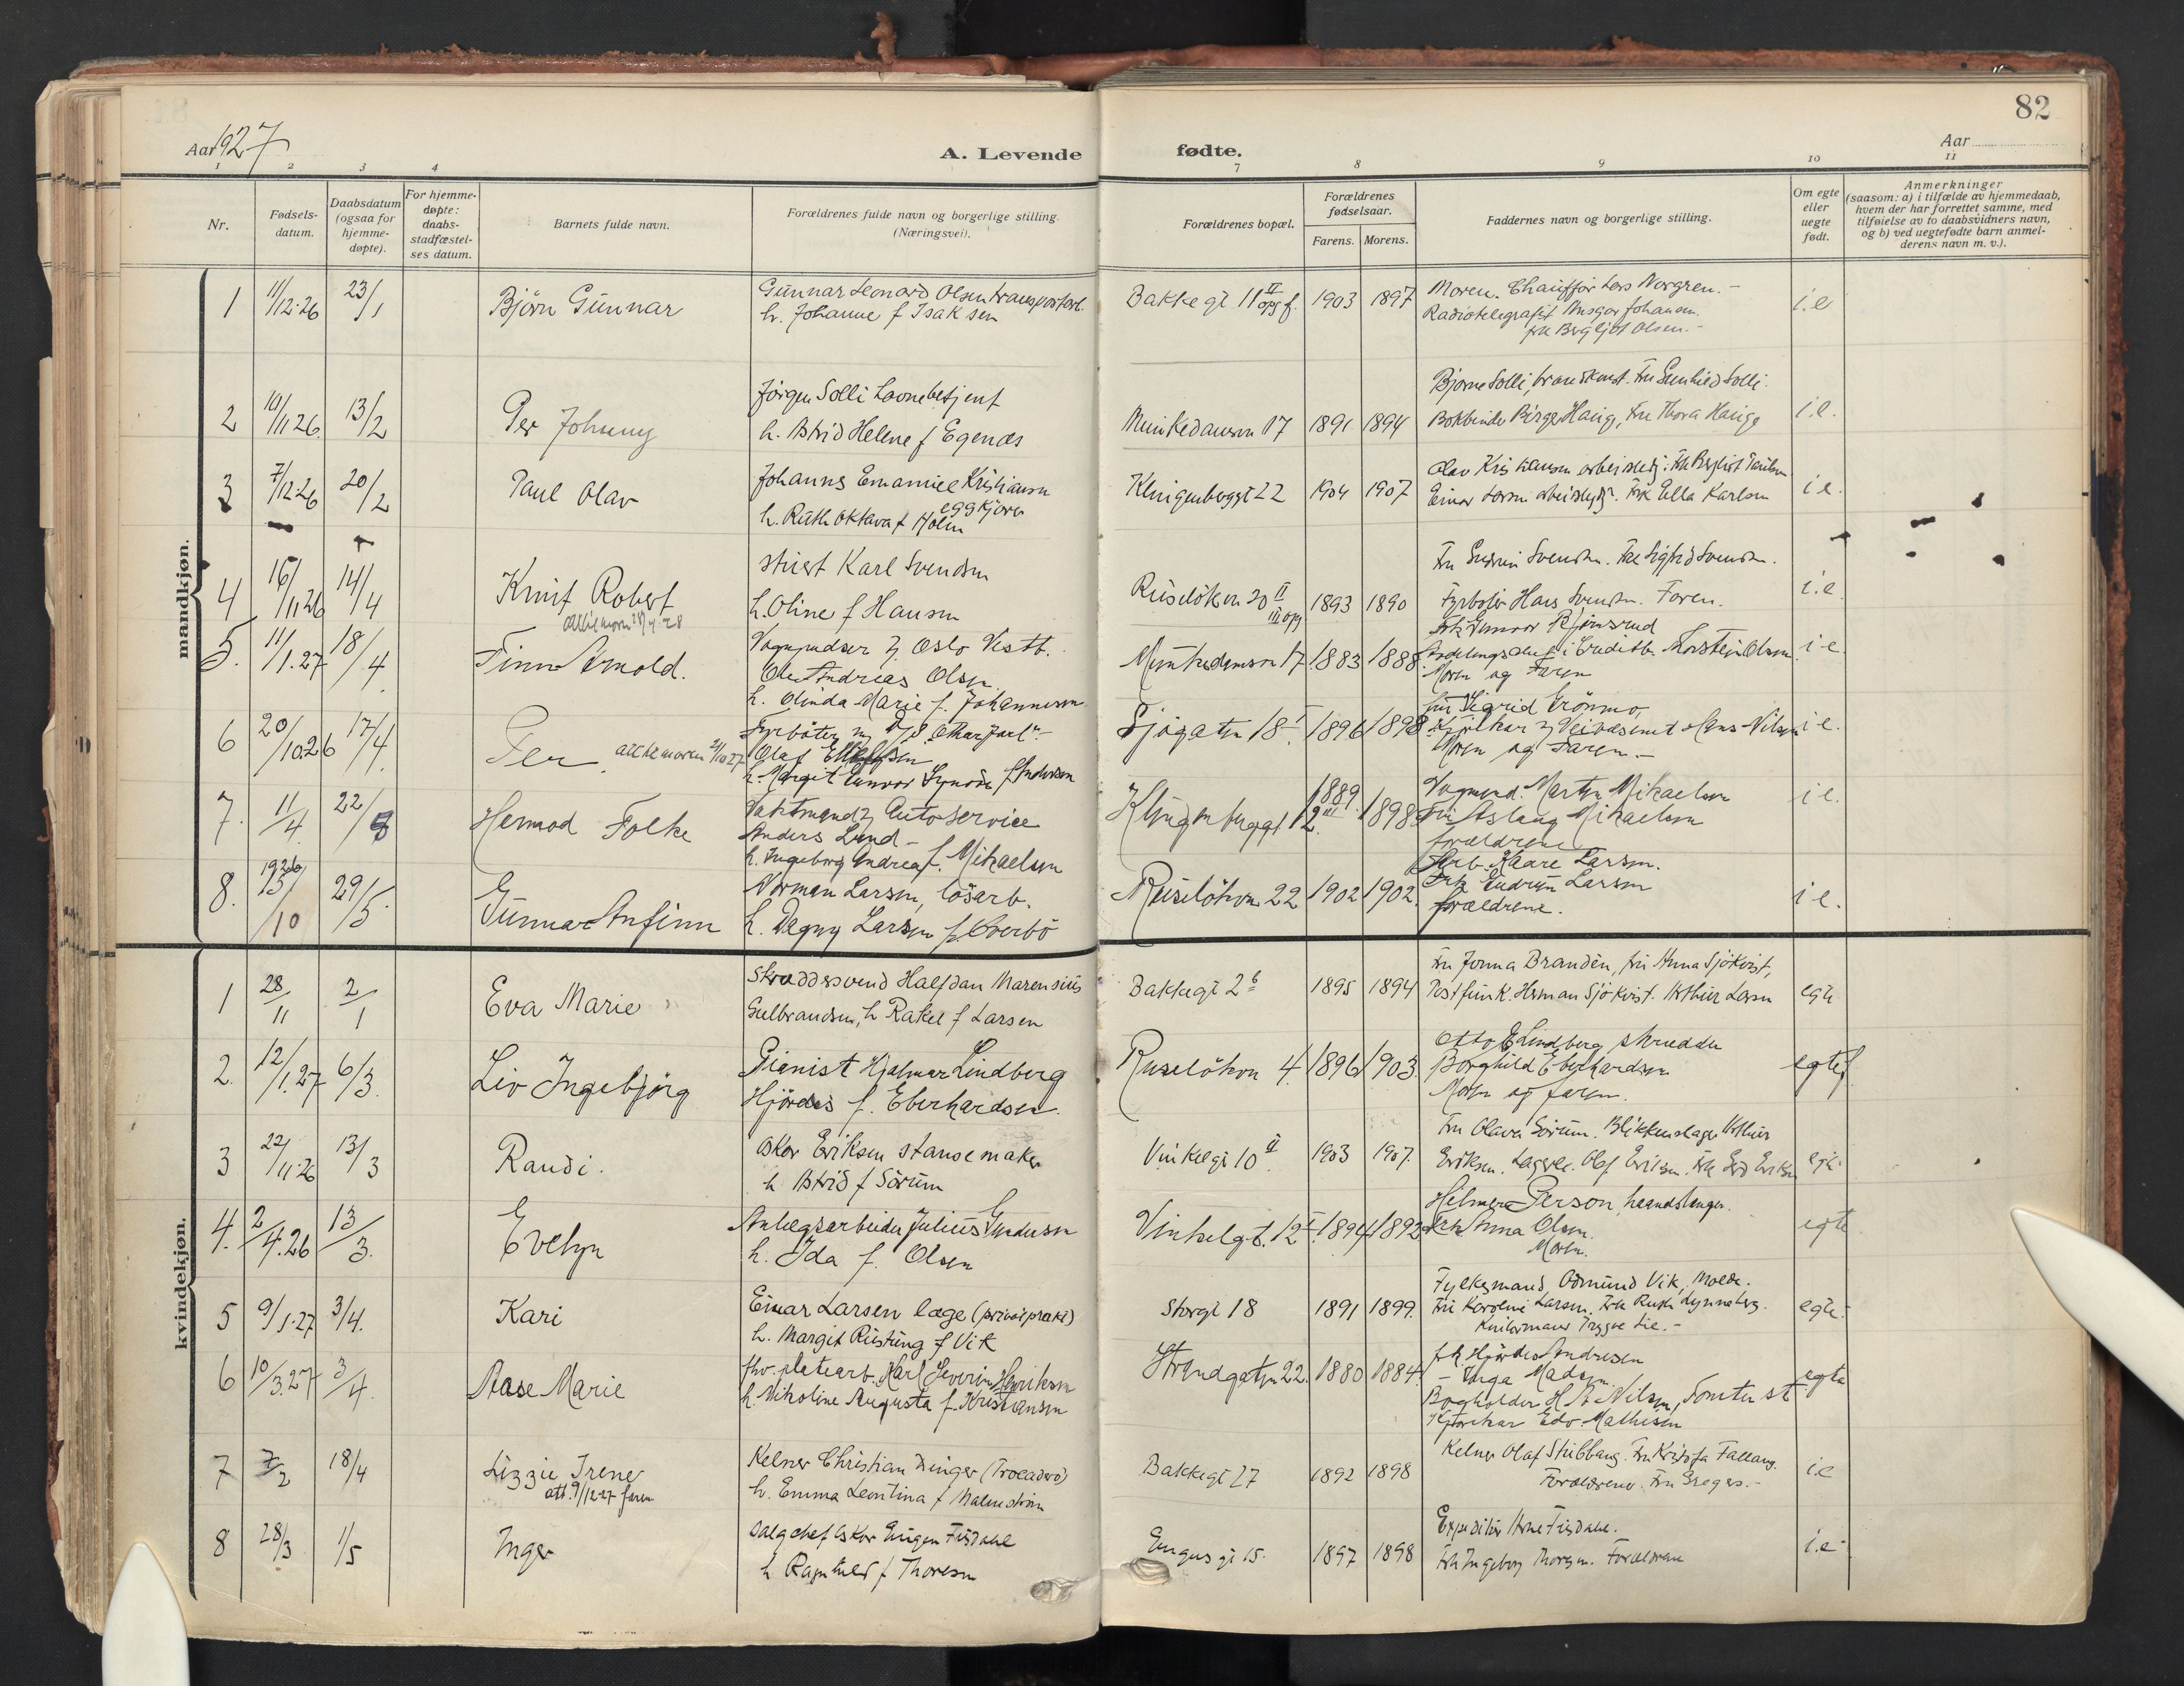 82
Aar 1927
A. Levende
fødte.
Aar
1 2 3 4 7 8 9 10 11
Nr.
Fødsels-
datum.
Daabsdatum
(ogsaa for
hjemme-
døpte).
For hjemme-
døpte:
daabs-
stadfæstel-
ses datum.
Barnets fulde navn.
Forældrenes fulde navn og borgerlige stilling.
(Næringsvei).
Forældrenes bopæl.
Forældrenes
fødselsaar.
Farens. Morens.
Faddernes navn og borgerlige stilling.
Om egte
eller
uegte
født.
Anmerkninger
(saasom: a) i tilfælde av hjemmedaab,
hvem der har forrettet samme, med
tilføielse av to daabsvidners navn,
og b) ved uegtefødte barn anmel-
derens navn m. v.).
mandkjøn.
1 11/12.26 23/1 Björn Gunnar
Gunnar Leonard Olsen
h. Johanne f Isaksen
Bakkegt 11 II opg f. 1903 1897
Moren. Chauffør Lars Norgren.-
Radiotelegrafist Ansgar Johansen.
frk Bergljot Olsen.-
i.e
2 10/11 26. 13/2 Per Johnny
Jörgen Solli
h. Astrid Helene f Egenæs
Munkedamsvn 17 1891 1894
Bjarne Solli, Fru Gunhild Solli.
Bokbinder Birger Haug, Fru Thora Haug
i.e.
3 7/12 26 20/2 Paul Olav
Johannes Emanuel Kristiansen
eggkjører
h. Ruth Oktava f Holm
Klingenberggt 22 1904 1907
Olav Kristiansen arbeidsledig. Frk Bergliot
Einar Larsen arbeidsledig. Frk Ella Karlsen
i e.
4 16/11 26 14/4 Knut Robert
28/4 28
Karl Svendsen
h. Oline f Hansen
Ruselökvn 20 II
III opg
1893 1890
Fru Svendsen. Frk Sigfrid Svendsen.
Fyrbøter Hans Svendsen. Faren.
i.e.
5. 11/1.27 18/4 Finn Arnold.
Vognpudser v. Oslo Vestb.
Ole Andreas Olsen
h. Olinda Marie f. Johannessen
Munkedamsvn 17 1883 1888
Frk Gunvor Bjönsrud
i Creditb. Thorstein Olsen
Moren og Faren
i-e.
6 20/10.26 17/4 Per. att til moren 2/10 27
Fyrböter D/S
Olaf Ellefsen
h. Margit Gunvor Synöve f Andersen
Sjögaten 18 I. 1896 1898
fru Sigrid Grönmo,
v Veivæsenet Hans Nilsen
Moren og Faren.-
i e.
7. 11/4 22/8 Hermod Folke
Vaktmand v Autoservice
Anders Lund -
h. Ingeborg Andrea f. Mikaelsen
Klingenberggt 12 III. 1889. 1898
Martin Mikaelsen
Fru Aslaug Mikaelsen
forældrene
i e.
8. 1926 15/10 29/5. Gunnar Anfinn
Norman Larsen, lösarb.
h. Dagny Larsen f. Överbö
Ruselökvn. 22 1902 1902.
Kaare Larsen.
Frk Gudrun Larsen
forældrene.
i e.
kvindekjøn.
1 28/11 2/1 Eva Marie
Skræddersvend Halfdan Marensius
Gulbrandsen, h Rakel f Larsen
Bakkegt 2b 1895 1894
Fru Jonna Brandén, fru Anna Sjökvist,
Postfunk. Herman Sjökvist. Arthur Larsen
egte
2. 12/1.27 6/3. Liv Ingebjörg
Pianist Hjalmar Lindberg
Hjördis f. Eberhardsen.
Ruselökvn 4. 1896 1903.
Otto E Lindberg skrædder
Borghild Eberhardsen
Moren og faren.
egtef
3 22/11.26 13/3 Randi.
Oskar Eriksen stansemaker
h Astrid f Sörum
Vinkelgt 10 II. 1903 1907.
Fru Olava Sörum. Blikkenslager Arthur
Eriksen. Lagerl. Olaf Eriksen. Frk Eriksen
egte
4. 2/4.26 13/3. Evelyn
Anlegsarbeider Julius Gundersen
h. Ida f. Olsen
Vinkelgt. 12 I. 1894 1892
Hilmer Person, haandlanger.
Frk Anna Olsen.
Moren.
egte
5 9/1.27 3/4. Kari
Einar Larsen læge (privat prakt)
h. Margit Rustung f Vik
Storgt 18 1891 1899.
Fylkesmand Odmund Vik, Molde.
Fru Karoline Larsen. Frk Ruth Lynneberg.
Trygve Lie.-
egte.
6 10/3.27 3/4. Aase Marie
fhv. platearb. Karl Severin Henriksen
h. Nikoline Augusta f. Kristiansen
Strandgaten 22. 1880 1884.
frk. Hjördis Andresen
- Inga Madsen.
Bogholder H A Nilsen, Tomtegt
Edv Mathisen
egte
7 7/2 18/4 Lizzie Irene
att. 9/12-27 faren
Kelner Christian Zinger (Trocadero)
h. Emma Leontina f Malmström
Bakkegt 27 1892 1898
Kelner Olaf Stubbang. Fru Kristofa Fallang.
Forældrene. Fru Gregers.-
i.e
8 28/3 1/5 Inger
Salgschef Oskar Eugen Fisdahl
h Ragnhild f Thoresen
Engens gt 15. 1897 1898
Expeditör Arne Fisdahl.
Frk Ingeborg Thoresen. Forældrene
i.e.